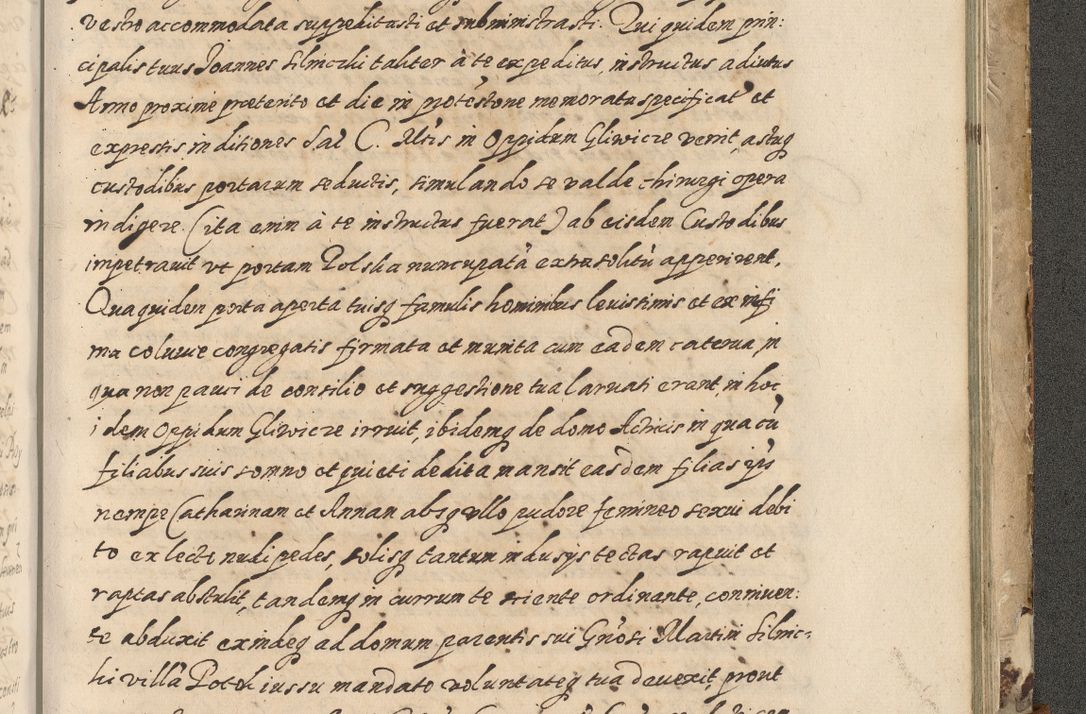 vestro accommodata suppeditasti et subministrasti. Qui quidem prin:
cipalis tuus Joannes Silniczki taliter à te expeditus, instructus adiutus
Anno proxime præterito et die in protestone memorata specificat et
expressis in ditiones Sae C. Mtis in Oppidum Gliwicze venit, astuq
custodibus portarum seductis, simulando se valde chirurgi opera
indigere. (ita enim à te instructus fuerat) ab eisdem Custodibus
impetrauit vt portam Polska nuncupatã extra solitũ apperirent,
Qua quidem porta aperta tuisq famulis hominibus leuissimis et ex infi
ma coluuie congregatis firmata et munita cum eadem caterua, in
qua non pauci de consilio et suggestione tua laruati erant, in hoc
idem Oppidum Gliwicze irruit, ibidemq de domo Actricis in qua cũ
filiabus suis somno et quieti dedita mansit easdem filias ips
nempe Catharinam et Annam absq vllo pudore femineo sexui debi
to ex lecto nudi pedes, solisq tantum indusijs tectas rapuit et
raptas abstulit, tandemq in currum te sciente ordinante, conniuen:
te abduxit exindeq ad domum parentis sui Gnosi Martini Silnic-
ki villã Potok iussu mandato voluntateq tua deuexit, prout